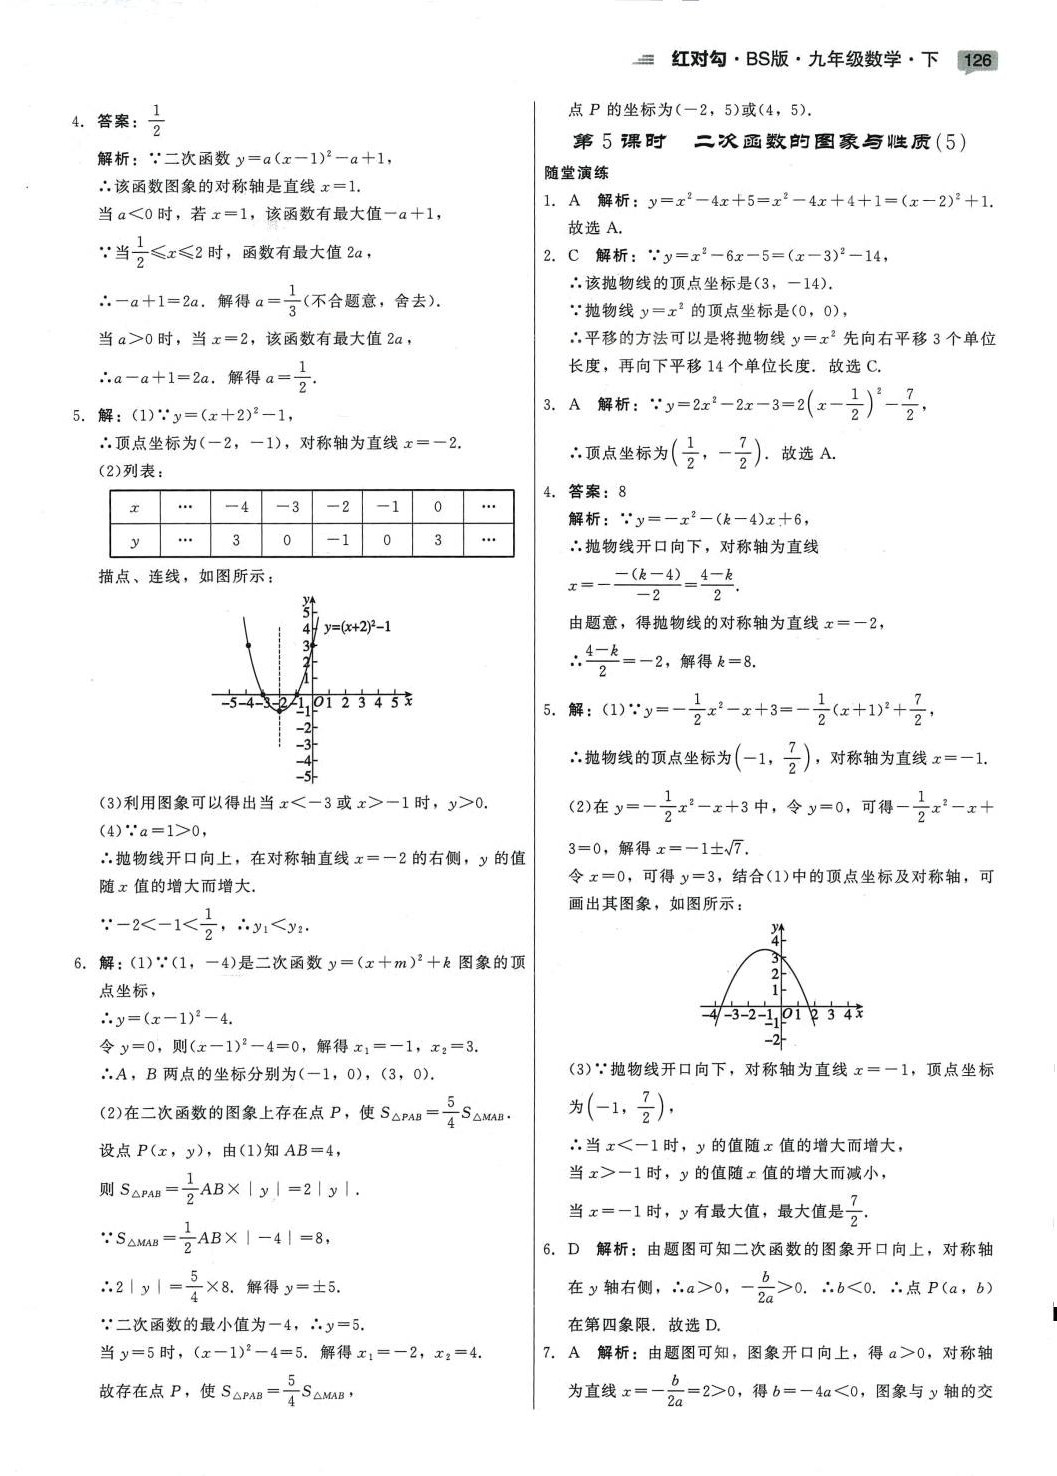 红对勾·BS版·九年级数学·下 126
4. 答案：1/2
解析：∵二次函数 y=a(x-1)²-a+1，
∴该函数图象的对称轴是直线 x=1.
当 a<0 时，若 x=1，该函数有最大值-a+1，
∵当1/2≤x≤2 时，函数有最大值 2a，
∴-a+1=2a. 解得 a=1/3(不合题意，舍去).
当 a>0 时，当 x=2，该函数有最大值 2a，
∴a-a+1=2a. 解得 a=1/2.
5. 解：(1)∵y=(x+2)²-1，
∴顶点坐标为(-2，-1)，对称轴为直线 x=-2.
(2)列表：
x … -4 -3 -2 -1 0 …
y … 3 0 -1 0 3 …
描点、连线，如图所示：
y
5
4 y=(x+2)²-1
3
2
1
-5-4-3-2-1 O 1 2 3 4 5 x
-1
-2
-3
-4
-5
(3)利用图象可以得出当 x<-3 或 x>-1 时，y>0.
(4)∵a=1>0，
∴抛物线开口向上，在对称轴直线 x=-2 的右侧，y 的值
随 x 值的增大而增大.
∵-2<-1<1/2，∴y₁<y₂.
6. 解：(1)∵(1，-4)是二次函数 y=(x+m)²+k 图象的顶
点坐标，
∴y=(x-1)²-4.
令 y=0，则(x-1)²-4=0，解得 x₁=-1，x₂=3.
∴A，B 两点的坐标分别为(-1，0)，(3，0).
(2)在二次函数的图象上存在点 P，使 S△PAB=5/4 S△MAB.
设点 P(x，y)，由(1)知 AB=4，
则 S△PAB=1/2 AB×|y|=2|y|.
∵S△MAB=1/2 AB×|-4|=8，
∴2|y|=5/4×8. 解得 y=±5.
∵二次函数的最小值为-4，∴y=5.
当 y=5 时，(x-1)²-4=5. 解得 x₁=-2，x₂=4.
故存在点 P，使 S△PAB=5/4 S△MAB，
点 P 的坐标为(-2，5)或(4，5).
第 5 课时 二次函数的图象与性质(5)
随堂演练
1. A 解析：y=x²-4x+5=x²-4x+4+1=(x-2)²+1.
故选 A.
2. C 解析：∵y=x²-6x-5=(x-3)²-14，
∴该抛物线的顶点坐标是(3，-14).
∵抛物线 y=x² 的顶点坐标是(0，0)，
∴平移的方法可以是将抛物线 y=x² 先向右平移 3 个单位
长度，再向下平移 14 个单位长度. 故选 C.
3. A 解析：∵y=2x²-2x-3=2(x-1/2)²-7/2，
∴顶点坐标为(1/2，-7/2). 故选 A.
4. 答案：8
解析：∵y=-x²-(k-4)x+6，
∴抛物线开口向下，对称轴为直线
x=-\frac{-(k-4)}{-2}=\frac{4-k}{2}.
由题意，得抛物线的对称轴为直线 x=-2，
∴\frac{4-k}{2}=-2，解得 k=8.
5. 解：(1)∵y=-1/2 x²-x+3=-1/2(x+1)²+7/2，
∴抛物线的顶点坐标为(-1，7/2)，对称轴为直线 x=-1.
(2)在 y=-1/2 x²-x+3 中，令 y=0，可得-1/2 x²-x+
3=0，解得 x=-1±√7.
令 x=0，可得 y=3，结合(1)中的顶点坐标及对称轴，可
画出其图象，如图所示：
y
4
3
2
1
-4-3-2-1 O 1 2 3 4 x
-1
-2
(3)∵抛物线开口向下，对称轴为直线 x=-1，顶点坐标
为(-1，7/2)，
∴当 x<-1 时，y 的值随 x 值的增大而增大，
当 x>-1 时，y 的值随 x 值的增大而减小，
当 x=-1 时，y 有最大值，最大值是7/2.
6. D 解析：由题图可知二次函数的图象开口向上，对称轴
在 y 轴右侧，∴a>0，-b/2a>0. ∴b<0. ∴点 P(a，b)
在第四象限. 故选 D.
7. A 解析：由题图可知，图象开口向上，得 a>0，对称轴
为直线 x=-b/2a=2>0，得 b=-4a<0，图象与 y 轴的交